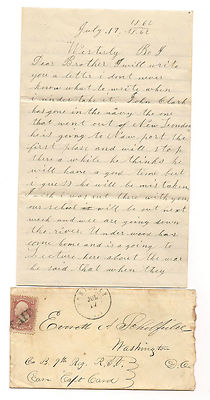 1862
July 17, 1862
Westerly R I
Dear Brother I will write
you a letter i dont know
know what to write when
i undertake it. John Clark
has gone in the navy. the one
that went out of New London
he is going to New port the
first place and will stop
there a while he thinks he
will have a good time but
i guess he will be mistaken
I wish i was out there with you
our school will be out next
week and wee are going down
the river. Underwood has
come home and is going to
lecture here about the war
he said that when they
JUL
Everett A
Washington
D.C.
Co B 9th Reg R.I.V.
Care Capt Card